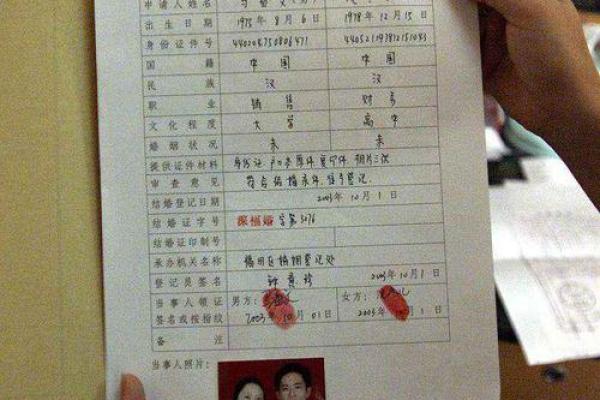 申请人姓名
出生日期 1975年8月6日 1978年12月15日
身份证件号
国籍 中国 中国
民族 汉 汉
职业 销售 财务
文化程度 大学 高中
婚姻状况 未 未
提供证件材料 身份证 户口本原件 复印件 相片三张
审查意见 符合结婚条件,准予登记.
结婚登记日期 2003年10月1日
结婚证字号 深福婚 字第3076
结婚证印制号
承办机关名称 福田区婚姻登记处
登记员签名 2003年10月1日
当事人领证 男方: 女方:
签名或按指纹 2003年10月01日 2003年 月1日
备注
当事人照片: